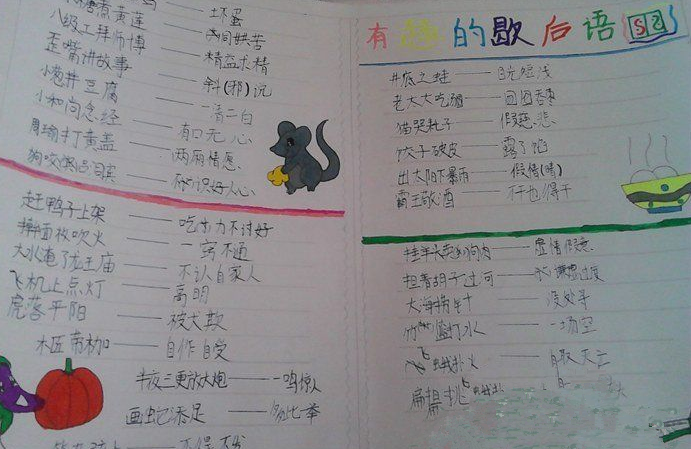 煮黄莲——苦
八级工拜师博——精益求精
歪嘴讲故事——斜(邪)说
小葱拌豆腐——一清二白
小和尚念经——有口无心
周瑜打黄盖——两厢情愿
狗咬吕洞宾——不识好人心
赶鸭子上架——吃力不讨好
擀面杖吹火——一窍不通
大水淹了龙王庙——不认自家人
飞机上点灯——高明
虎落平阳——被犬欺
木匠带枷——自作自受
半夜三更放大炮——一鸣惊人
画蛇添足——多此一举
有趣的歇后语 52
井底之蛙——目光短浅
老太太吃
猫哭耗子——假慈悲
饺子破皮——露了馅
出太阳下暴雨——假情(晴)
霸王敬酒——不干也得干
挂羊头卖狗肉——虚情假意
担着胡子过河——过度
大海捞针——没处寻
竹篮打水——一场空
飞蛾扑火——自取灭亡
扁担挑